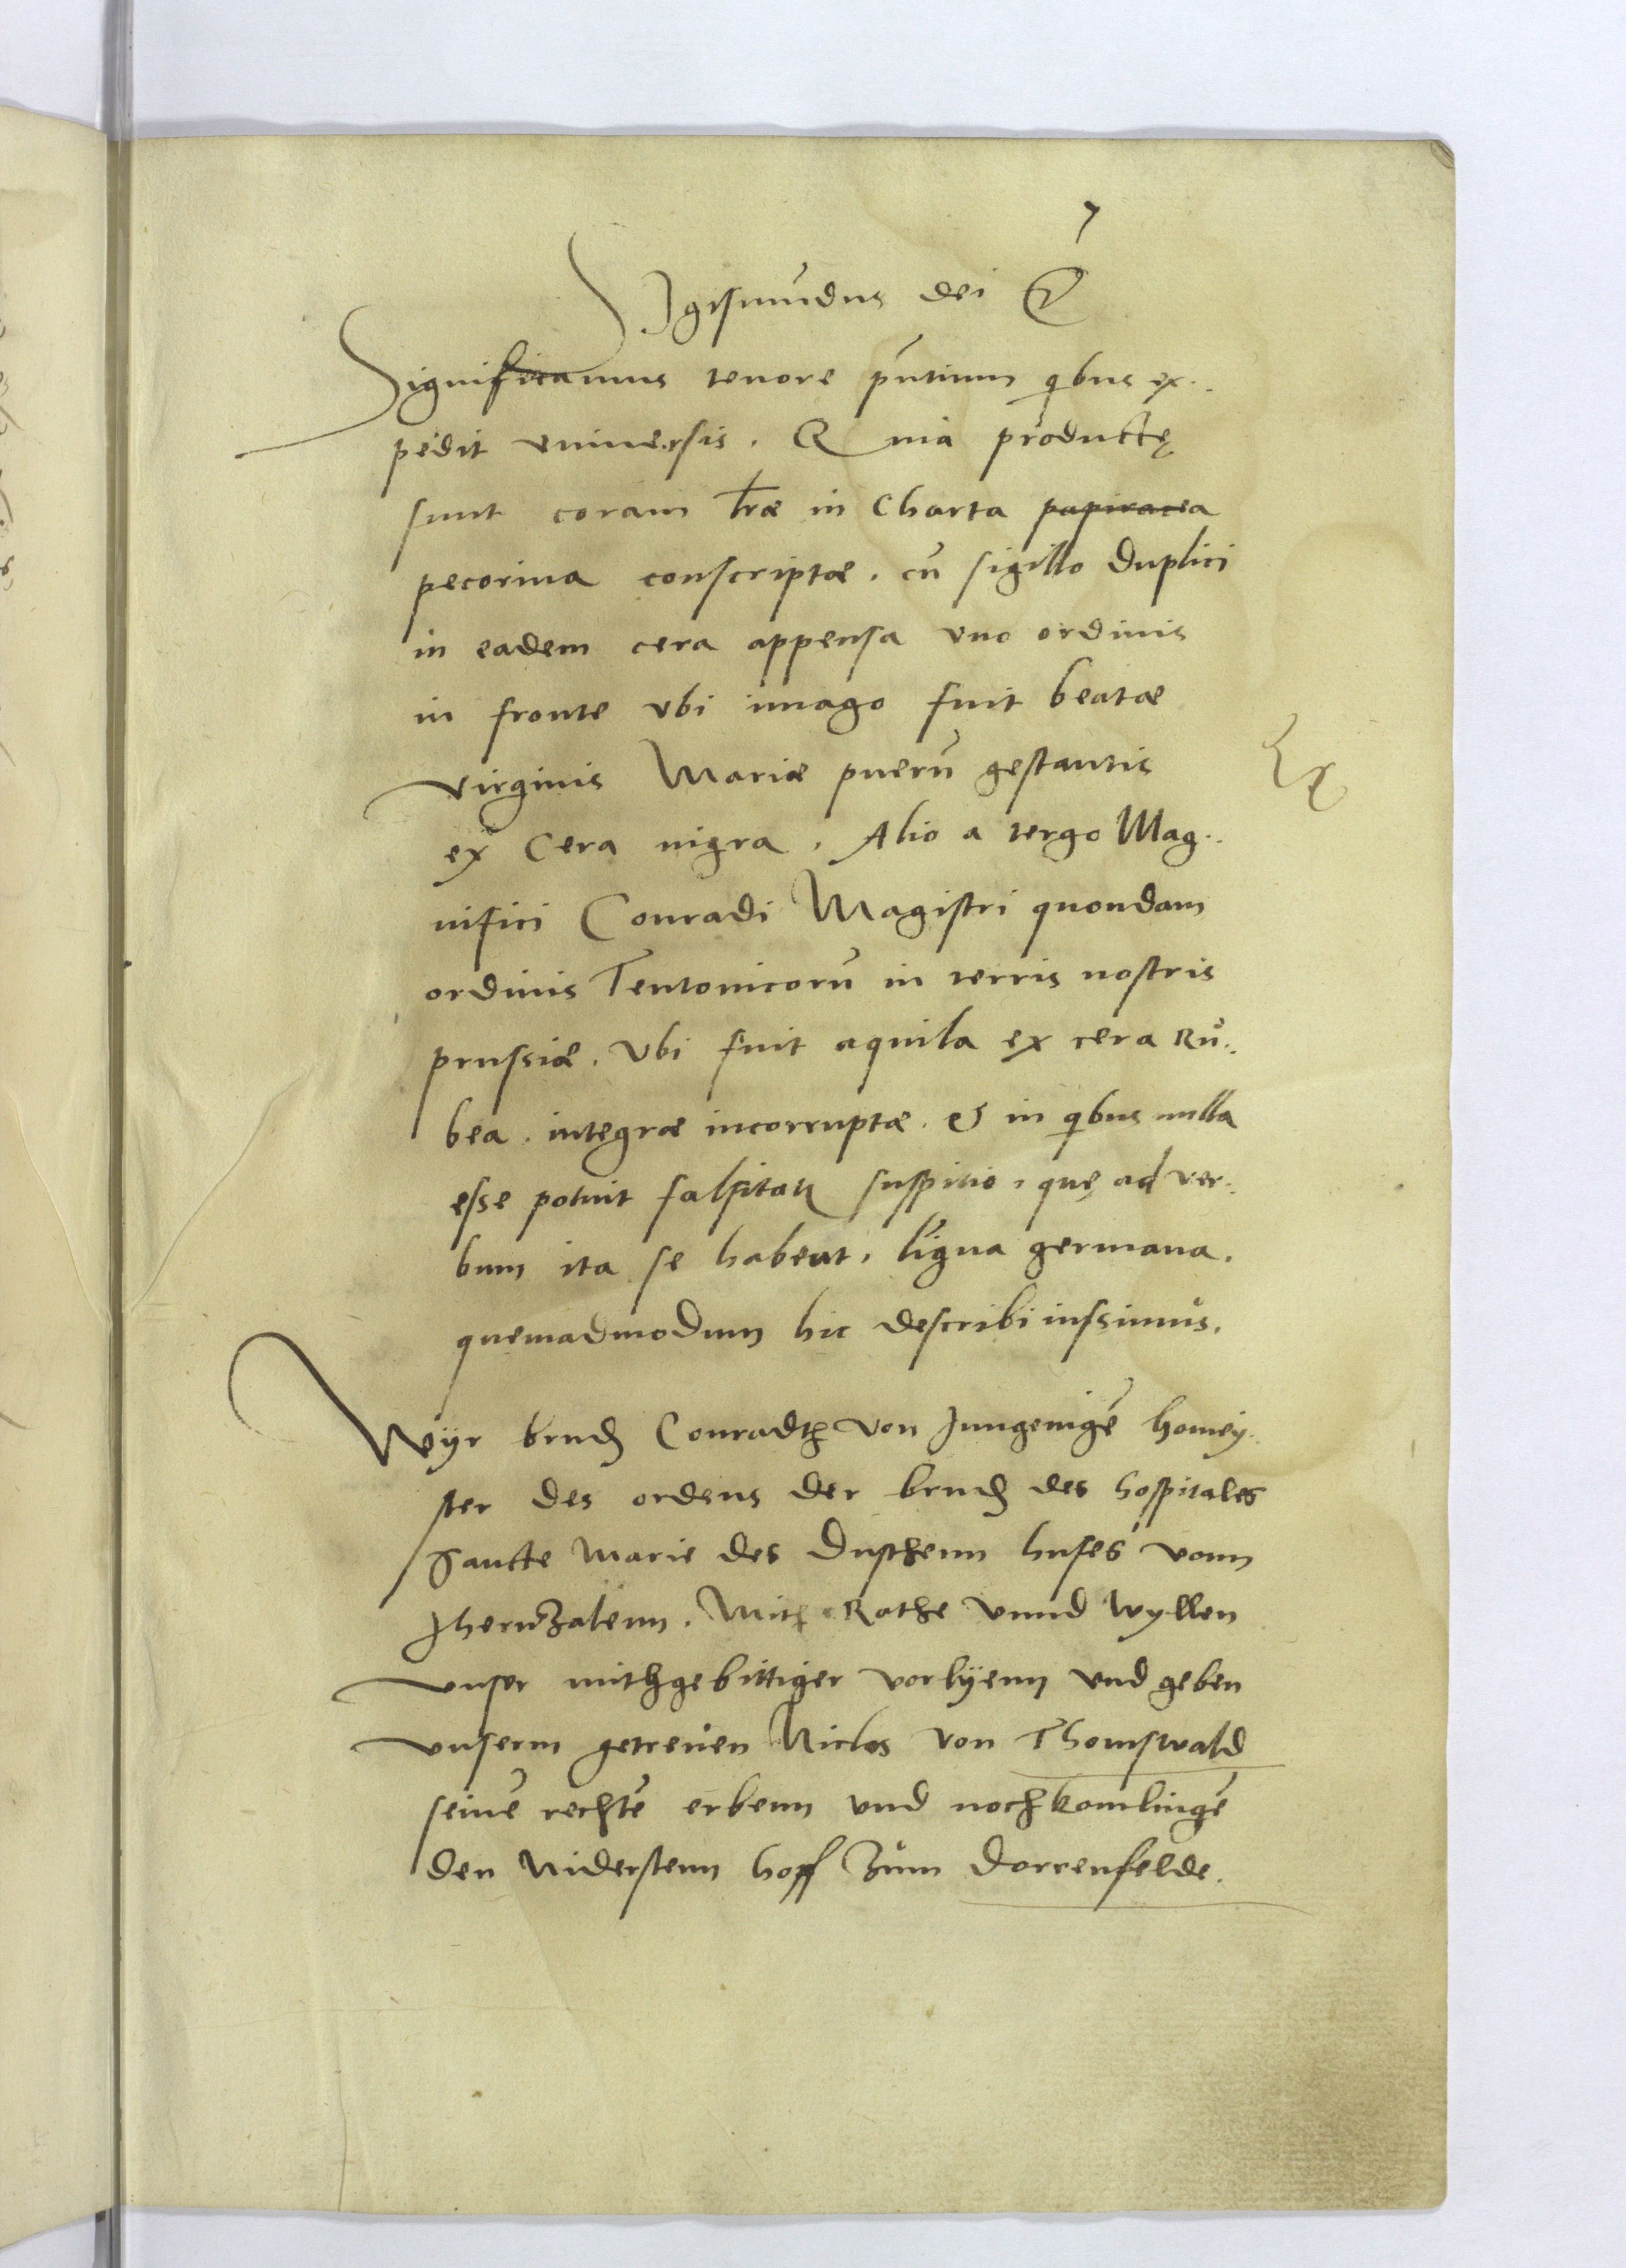 7
SIgismūdus dei &
Significamus tenore p̄ntium qibus ex..
pedit vniuersis. Quia productę
sunt coram l̅ræ in Charta papiracea
pecorina conscriptæ. cū sigillo duplici
in eadem cera appensa vno ordinis
in fronte vbi imago fuit beatæ
virginis Mariæ puerū gestantis
ex Cera nigra. Alio a tergo Mag..
nifici Conradi Magistri quondam
ordinis Teutonicorū in terris nostris
prussiæ. Vbi fuit aquila ex cera Ru..
bea. integræ incorruptæ. & in qibus nulla
esse potuit falsitatꝭ suspitio, quę ad ver..
bum ita se habent, līgua germana.
quemadmodum hic describi iussimus.
Wyr brudꝰ Conradth von Jungenigē homey..
ster des ordens der brudꝰ des hospitales
Sancte Marie des Duschenn huses vonn
Jheruzalenn. Mith Rathe vnnd wyllen
vnser mithgebittiger vorlyenn vnd geben
vnserm getreuen Niclos von Thomswald
seinē rechtē erbenn vnd nochkomlingē
den Niderstenn hoff zum Dorrenfelde.